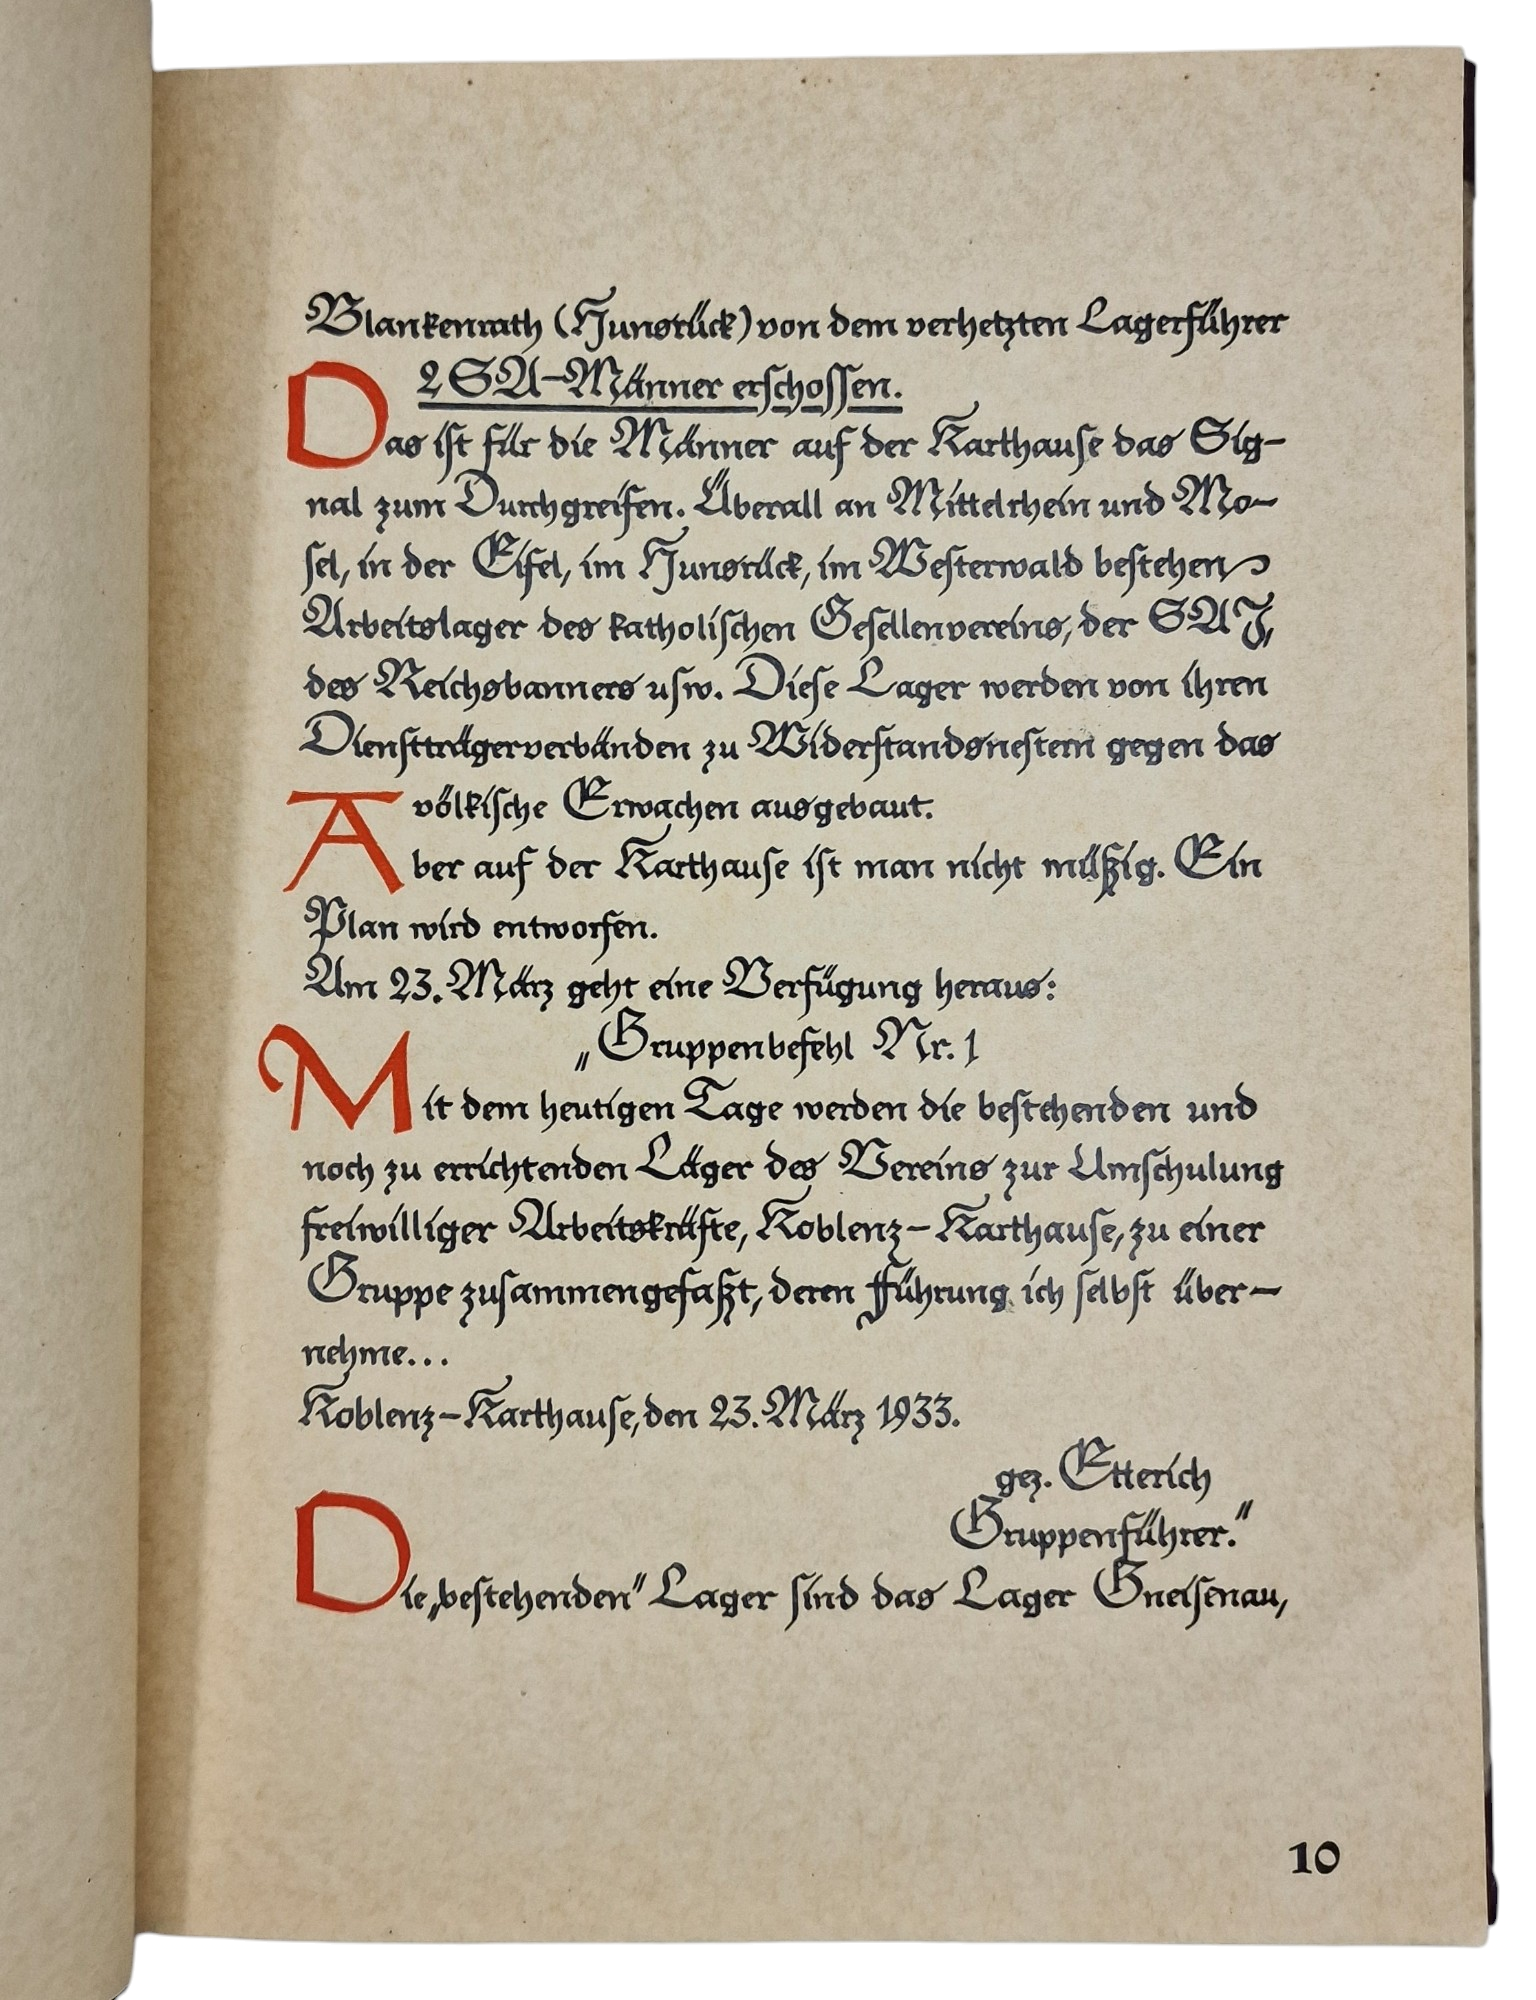 Blankenrath (Hunsrück) von dem verhetzten Lagerführer
2 SA-Männer erschossen.
Das ist für die Männer auf der Karthause das Sig-
nal zum Durchgreifen. Überall an Mittelrhein und Mo-
sel, in der Eifel, im Hunsrück, im Westerwald bestehen
Arbeitslager des katholischen Gesellenvereins, der SAJ,
des Reichsbanners usw. Diese Lager werden von ihren
Dienstträgerverbänden zu Widerstandsnestern gegen das
völkische Erwachen ausgebaut.
Aber auf der Karthause ist man nicht müßig. Ein
Plan wird entworfen.
Am 23. März geht eine Verfügung heraus:
„Gruppenbefehl Nr. 1
Mit dem heutigen Tage werden die bestehenden und
noch zu errichtenden Läger des Vereins zur Umschulung
freiwilliger Arbeitskräfte, Koblenz-Karthause, zu einer
Gruppe zusammengefaßt, deren Führung ich selbst über-
nehme...
Koblenz-Karthause, den 23. März 1933.
gez. Etterich
Gruppenführer.“
Die „bestehenden“ Lager sind das Lager Gneisenau,
10